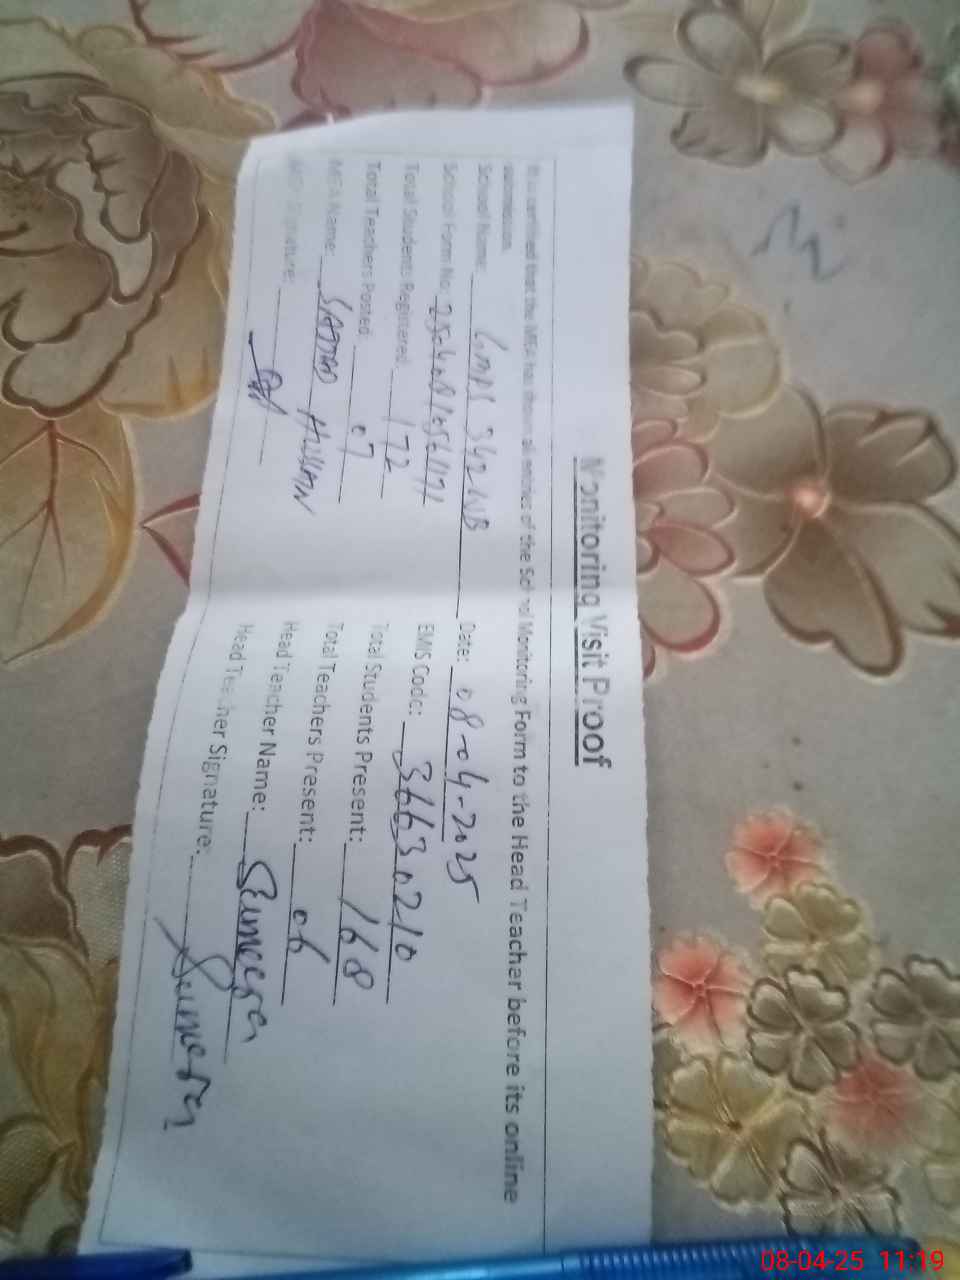 Monitoring Visit Proof
It is certified that the MEA has shown all entries of the School Monitoring Form to the Head Teacher before its online
submission.
School Name: GMPS 342 WB Date: 08-04-2025
School Form No: EMIS Code: 36630210
Total Students Registered: 172 Total Students Present: 168
Total Teachers Posted: 07 Total Teachers Present: 06
MEA Name: SAJJAD HUSSAIN Head Teacher Name: Sumeera
Signature: Head Teacher Signature: Sumeera
08-04-25 11:19